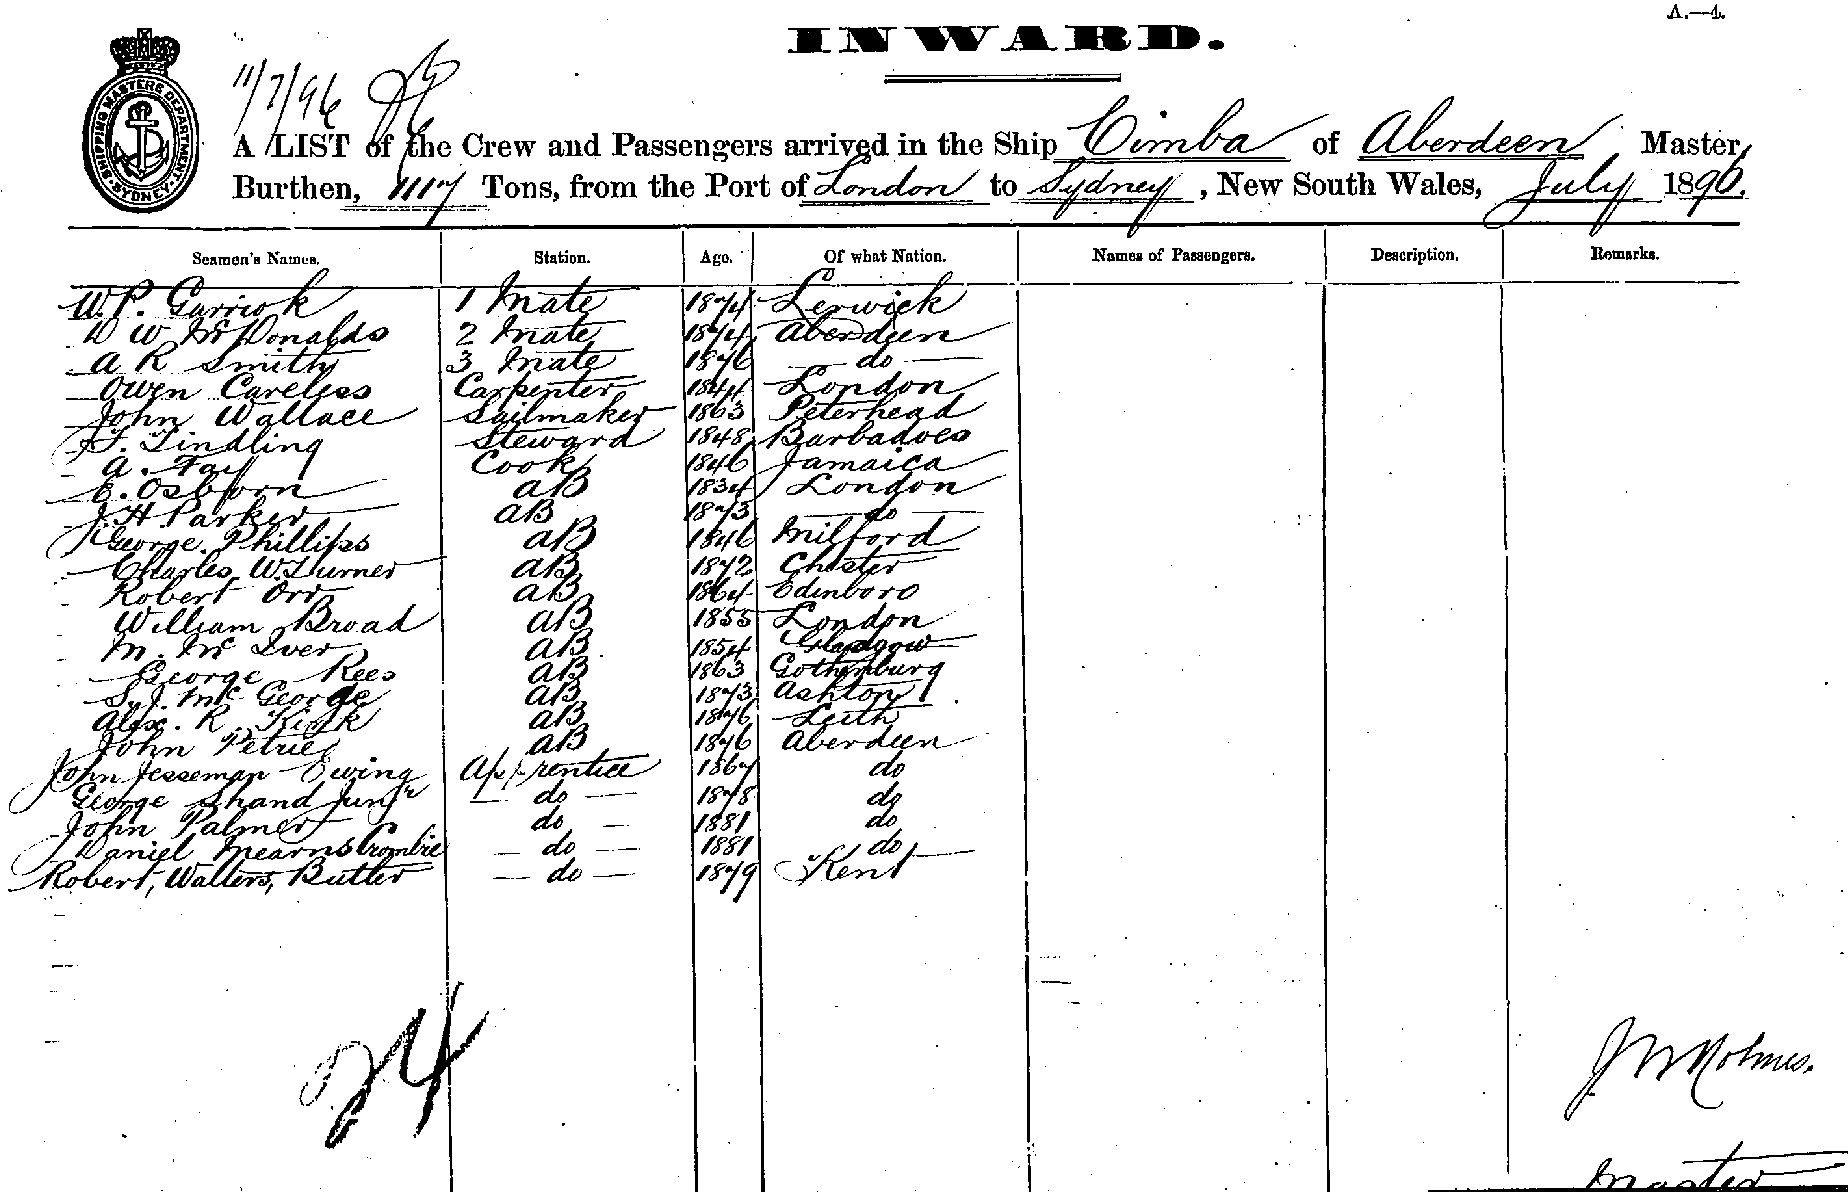 A.—4.
INWARD.
SHIPPING MASTERS DEPARTMENT SYDNEY
11/7/96
A LIST of the Crew and Passengers arrived in the Ship Cimba of Aberdeen Master,
Burthen, 1117 Tons, from the Port of London to Sydney, New South Wales, July 1896.
Seamen's Names. Station. Age. Of what Nation. Names of Passengers. Description. Remarks.
W.P. Garriock 1 Mate 1874 Lerwick
D W McDonalds 2 Mate 1874 Aberdeen
A R Smith 3 Mate 1876 do
Owen Careless Carpenter 1844 London
John Wallace Sailmaker 1863 Peterhead
Steward 1848 Barbadoes
A. Cook 1846 Jamaica
E. Osborn AB 1834 London
J. H Parker AB 1873 do
George Phillips AB 1846 Milford
Charles W. Turner AB 1872 Chester
Robert Orr AB 1864 Edinboro
William Broad AB 1855 London
M. McIver AB 1854 Glasgow
George Rees AB 1863 Gothenburg
S. J. McGeorge AB 1873 Ashton
Alex. R. Kirk AB 1876 Leith
John Petrie AB 1876 Aberdeen
John Jesseman Ewing Apprentice 1867 do
George Shand Junr do 1878 do
John Palmer do 1881 do
Daniel Mearns Crombie do 1881 do
Robert, Walters, Butler do 1879 Kent
24
J W Holmes.
Master